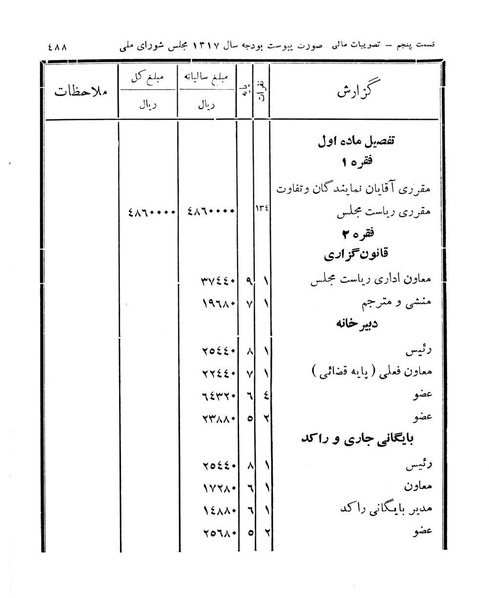 قسمت پنجم — تصویبات مالی صورت پیوست بودجه سال ۱۳۱۷ مجلس شورای ملی ٤٨٨
گزارش نفرات پایه مبلغ سالیانه مبلغ کل ملاحظات
ریال ریال
تفصیل ماده اول
فقره ۱
مقرری آقایان نمایندگان وتفاوت
مقرری ریاست مجلس ۱۳٤ ٤٨٦٠٠٠٠ ٤٨٦٠٠٠٠
فقره ۲
قانون گزاری
معاون اداری ریاست مجلس ۱ ۹ ۳۷٤٤۰
منشی و مترجم ۱ ۷ ۱۹٦۸۰
دبیرخانه
رئیس ۱ ۸ ۲٥٤٤۰
معاون فعلی (پایه قضائی) ۱ ۷ ۲۲٤٤۰
عضو ٤ ٦ ٦٤۳۲۰
عضو ۲ ٥ ۲۳۸۸۰
بایگانی جاری و راکد
رئیس ۱ ۸ ۲٥٤٤۰
معاون ۱ ٦ ۱۷۲۸۰
مدیر بایگانی راکد ۱ ٦ ۱٤۸۸۰
عضو ۲ ٥ ۲٥٦۸۰